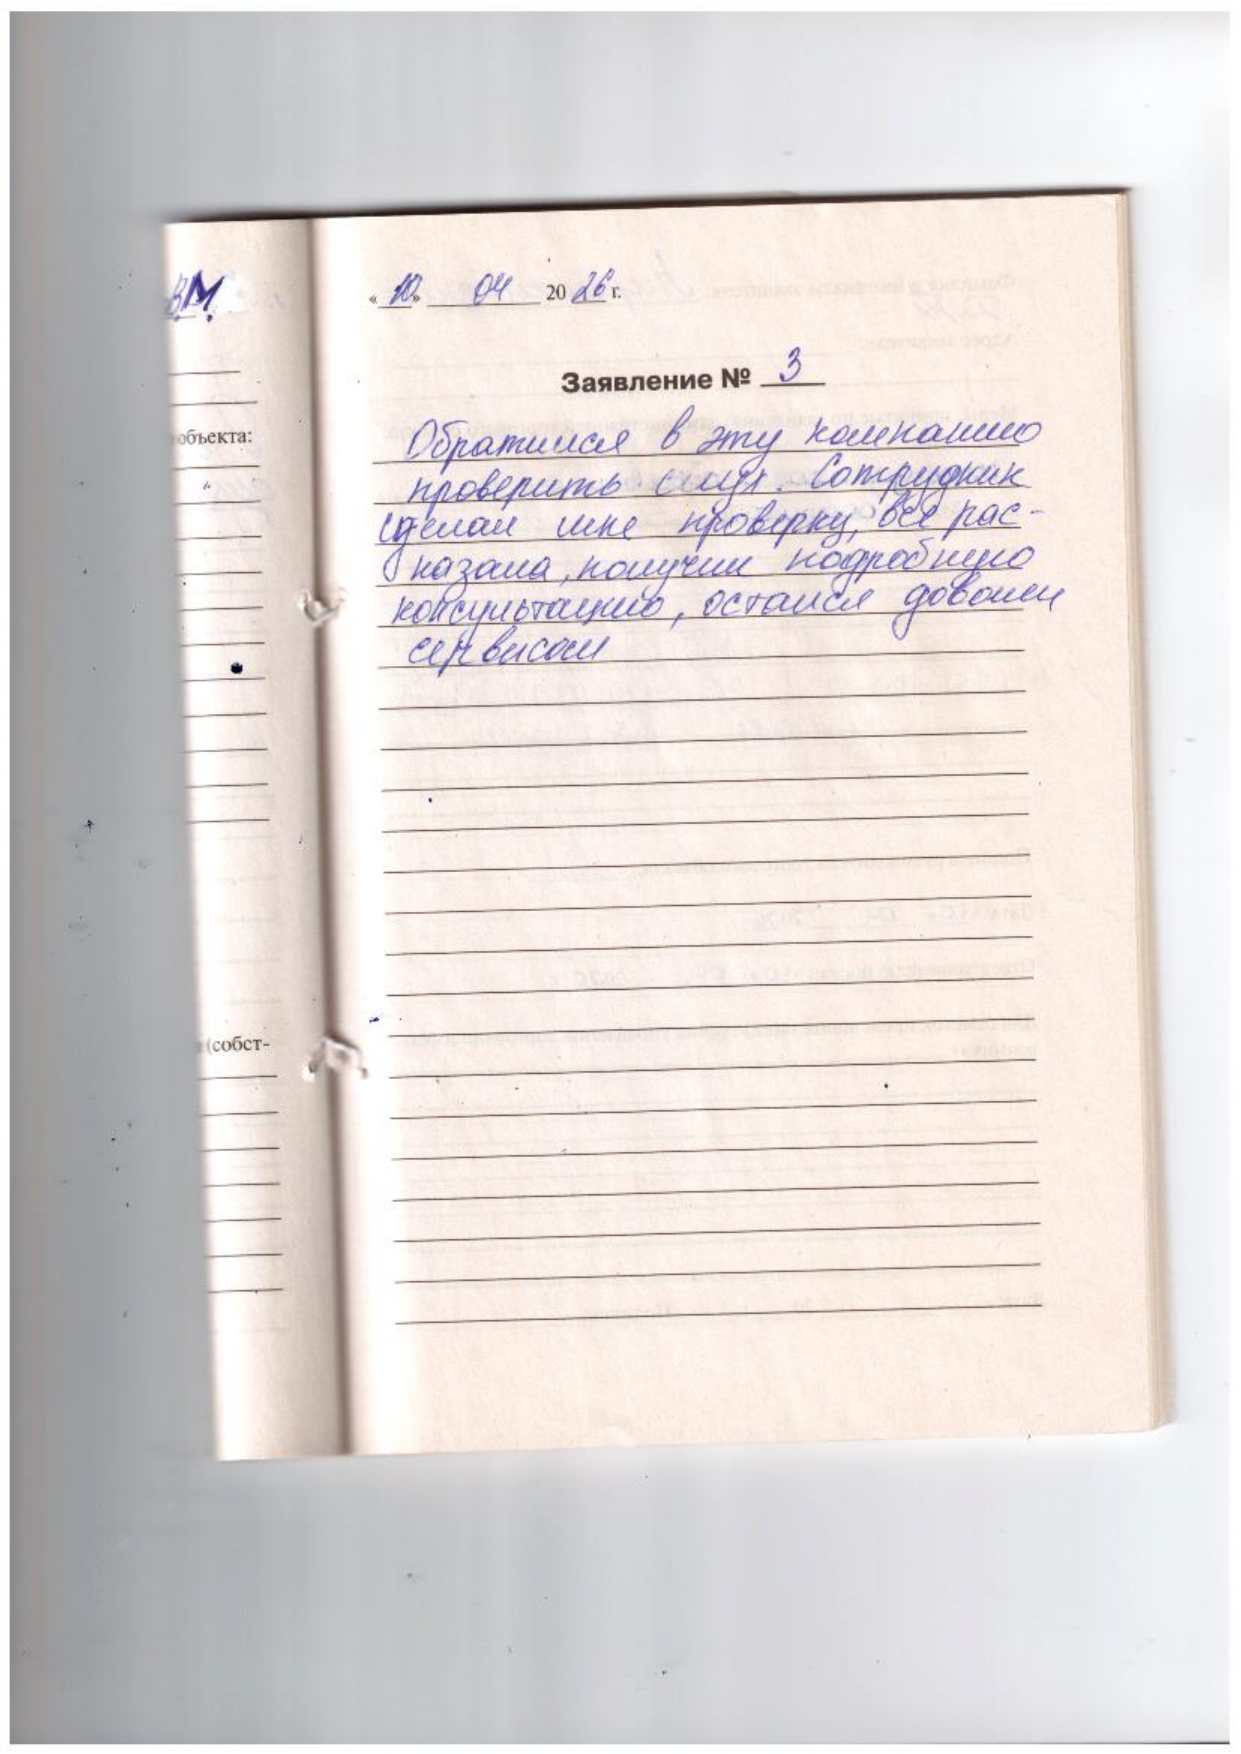 В.М.
« 10 » 04 20 26 г.
Заявление № 3
объекта:
Обратился в эту компанию
проверить слух. Сотрудник
сделал мне проверку, всё рас-
казала, получил подробную
консультацию, остался доволен
сервисом
(собст-